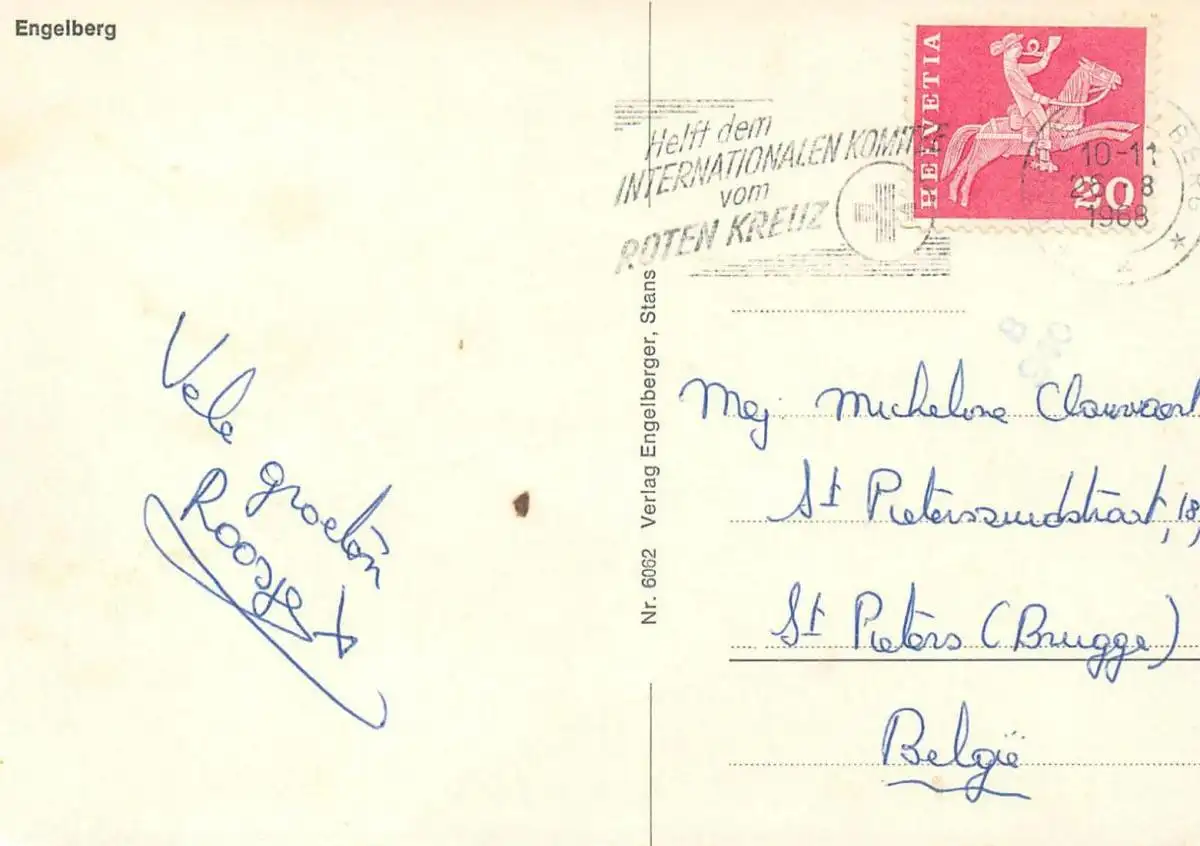 Engelberg
HELVETIA
20
Helft dem
INTERNATIONALEN KOMITEE
vom
ROTEN KREUZ
10-11
26. 8
1968
Nr. 6062 Verlag Engelberger, Stans
Vele
groeten
Roosje
Mej. Micheline
St Pieterszuidstraat, 18,
St Pieters (Brugge)
België